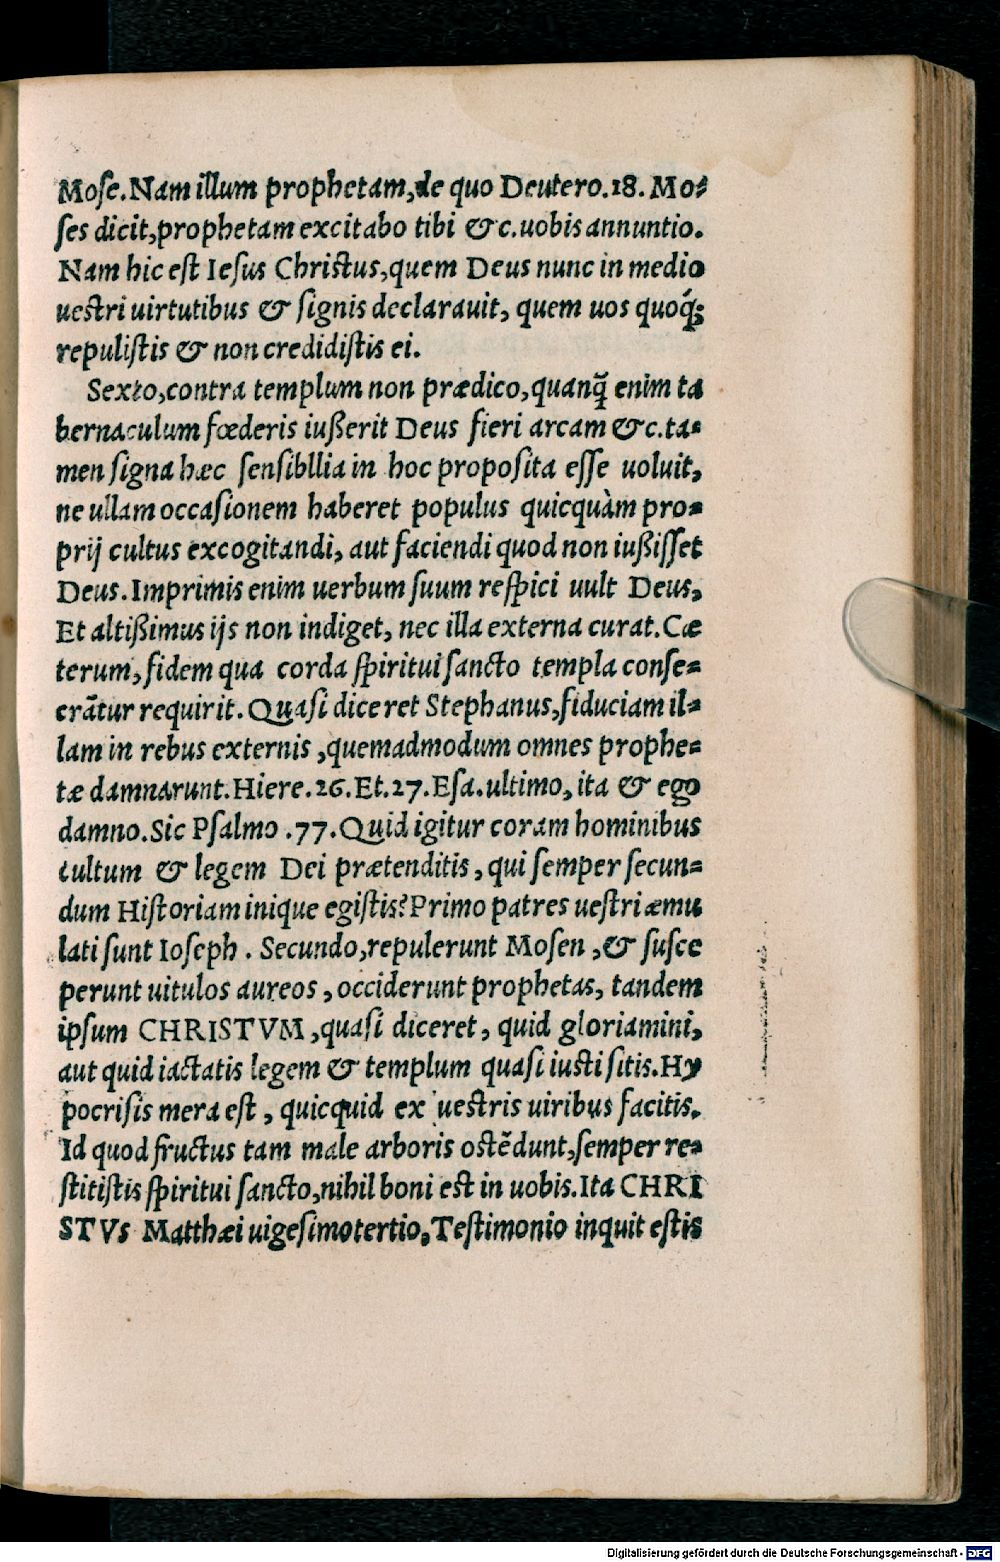 Mose. Nam illum prophetam, de quo Deutero. 18. Mo⸗
ses dicit, prophetam excitabo tibi &c. uobis annuntio.
Nam hic est Iesus Christus, quem Deus nunc in medio
uestri uirtutibus & signis declarauit, quem uos quoq́;
repulistis & non credidistis ei.
Sexto, contra templum non prædico, quanq̃ enim ta
bernaculum fœderis iußerit Deus fieri arcam &c. ta⸗
men signa hæc sensibllia in hoc proposita esse uoluit,
ne ullam occasionem haberet populus quicquàm pro⸗
prij cultus excogitandi, aut faciendi quod non iußisset
Deus. Imprimis enim uerbum suum respici uult Deus,
Et altißimus ijs non indiget, nec illa externa curat. Cæ
terum, fidem qua corda spiritui sancto templa conse⸗
crãtur requirit. Quasi diceret Stephanus, fiduciam il⸗
lam in rebus externis, quemadmodum omnes prophe⸗
tæ damnarunt. Hiere. 26. Et. 27. Esa. ultimo, ita & ego
damno. Sic Psalmo . 77. Quid igitur coram hominibus
cultum & legem Dei prætenditis, qui semper secun⸗
dum Historiam inique egistis? Primo patres uestri æmu
lati sunt Ioseph. Secundo, repulerunt Mosen, & susce
perunt uitulos aureos, occiderunt prophetas, tandem
ipsum CHRISTVM, quasi diceret, quid gloriamini,
aut quid iactatis legem & templum quasi iusti sitis. Hy
pocrisis mera est, quicquid ex uestris uiribus facitis.
Id quod fructus tam male arboris ostẽdunt, semper re⸗
stitistis spiritui sancto, nihil boni est in uobis. Ita CHRI
STVS Matthæi uigesimotertio. Testimonio inquit estis
Digitalisierung gefördert durch die Deutsche Forschungsgemeinschaft - DFG